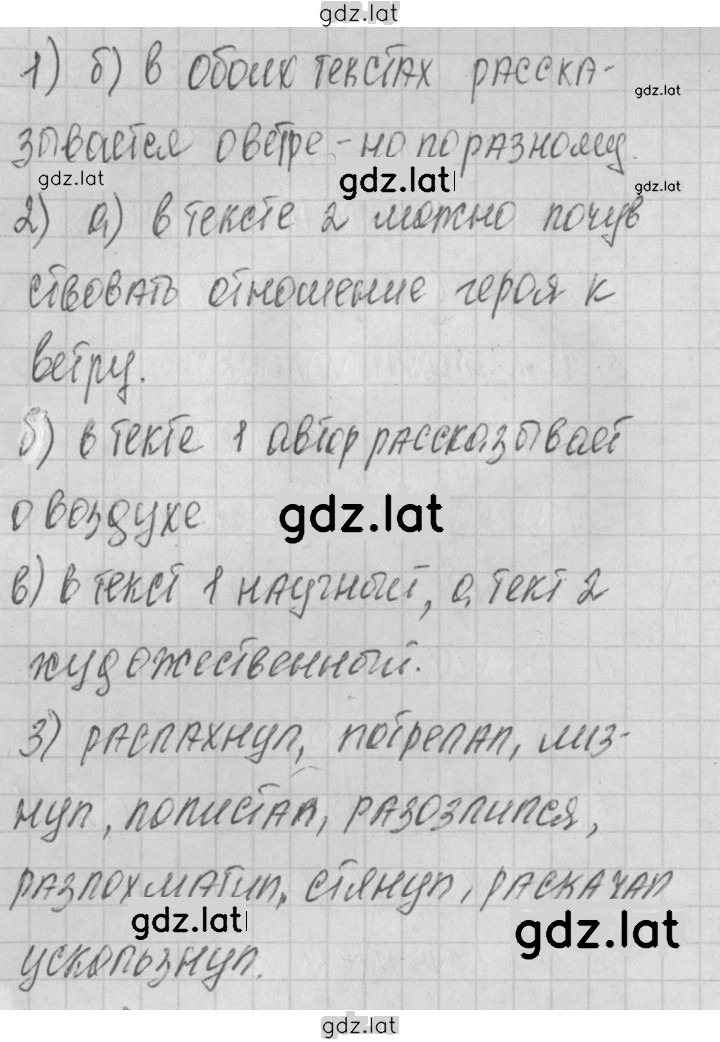 gdz.lat
1) б) в обоих текстах расска-
gdz.lat
зывается о ветре - но по разному.
gdz.lat
gdz.lat
gdz.lat
2) а) в тексте 2 можно почув
ствовать отношение героя к
ветру.
б) в текте 1 автор рассказывает
о воздухе
gdz.lat
в) в текст 1 научный, а тект 2
художественный.
3) распахнул, потрепал, лиз-
нул, полистал, разозлился,
разлохматил, стянул, раскачал
gdz.lat
gdz.lat
ускользнул.
gdz.lat